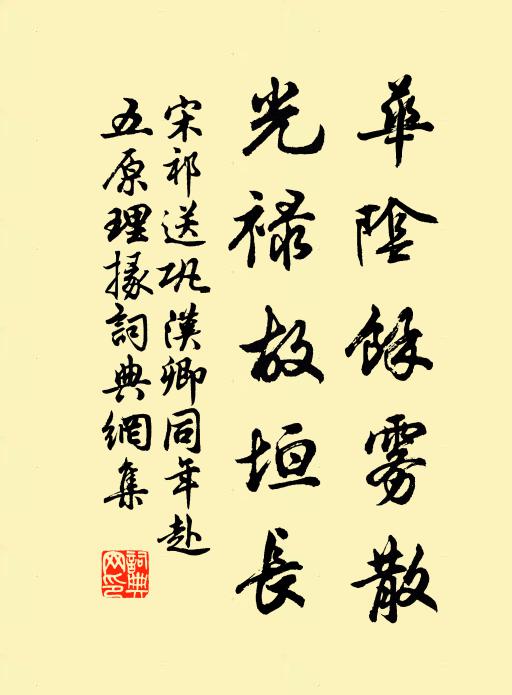 華陰餘雾散
光禄故垣長
宋祁送巩漢卿同年赴
五原理掾詞典網集
詞典网印